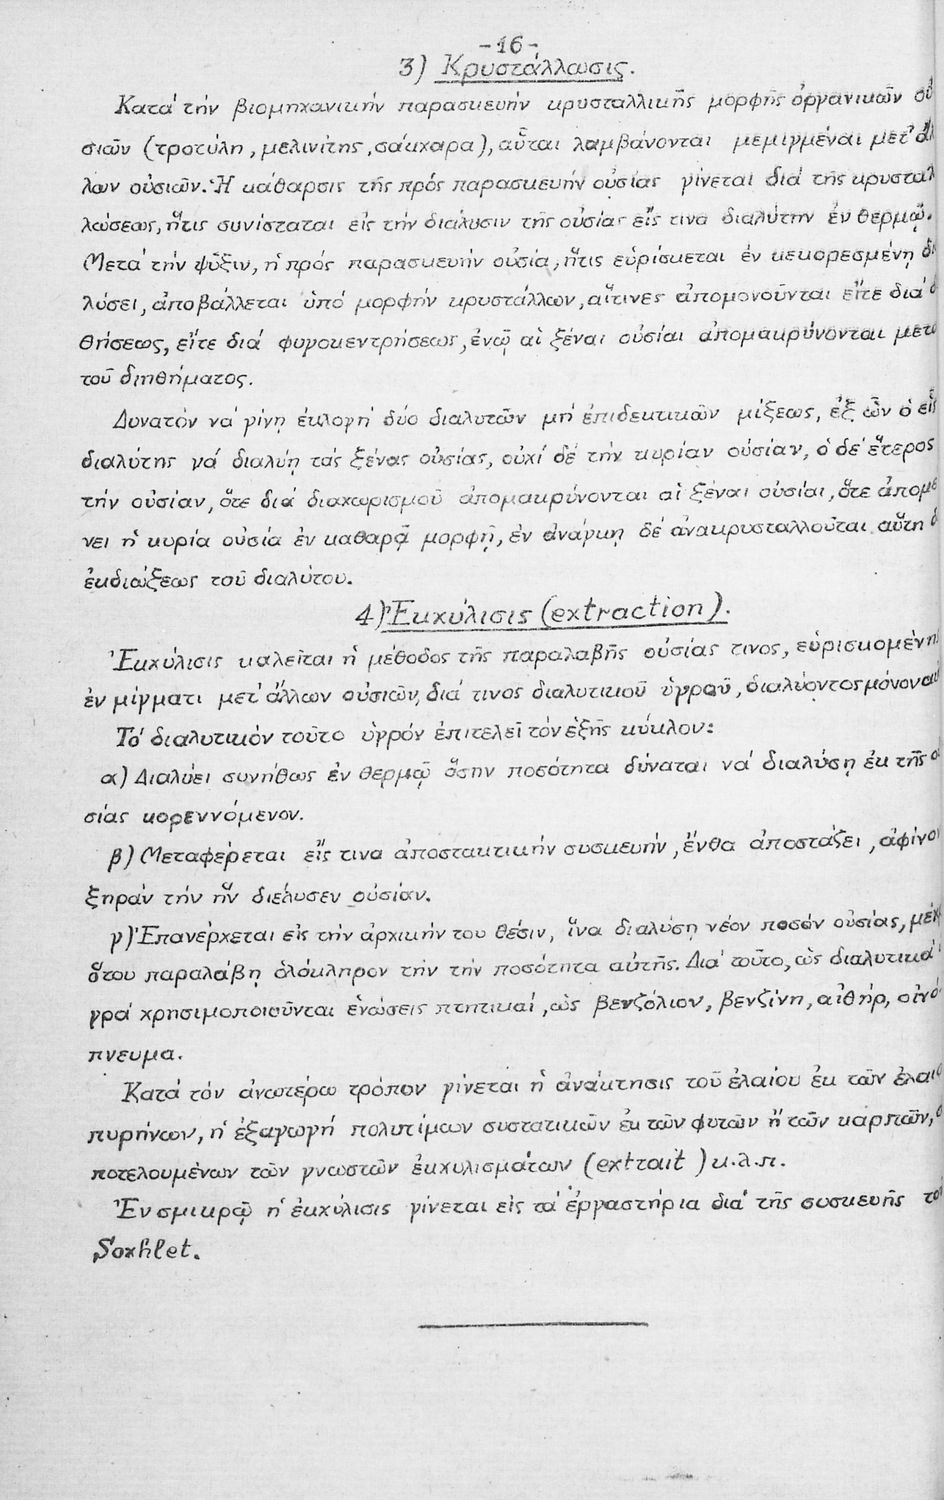 -16-
3) Κρυστάλλωσις.
Κατά τήν βιομηχανικήν παρασκευήν κρυσταλλικῆς μορφῆς ὀργανικῶν οὐ
σιῶν (τροτύλη, μελινίτης, σάκχαρα), αὗται λαμβάνονται μεμιγμέναι μετ' ἄλ
λων οὐσιῶν. Ἡ κάθαρσις τῆς πρός παρασκευήν οὐσίας γίνεται διά τῆς κρυσταλ
λώσεως, ἥτις συνίσταται εἰς τήν διάλυσιν τῆς οὐσίας εἴς τινα διαλύτην ἐν θερμῷ.
Μετά τήν ψῦξιν, ἡ πρός παρασκευήν οὐσία, ἥτις εὑρίσκεται ἐν κεκορεσμένῃ δι
λύσει, ἀποβάλλεται ὑπό μορφήν κρυστάλλων, αἵτινες ἀπομονοῦνται εἴτε διά δ
θήσεως, εἴτε διά φυγοκεντρήσεως, ἐνῷ αἱ ξέναι οὐσίαι ἀπομακρύνονται μετά
τοῦ διηθήματος.
Δυνατόν νά γίνῃ ἐκλογή δύο διαλυτῶν μή ἐπιδεκτικῶν μίξεως, ἐξ ὧν ὁ εἷς
διαλύτης νά διαλύῃ τάς ξένας οὐσίας, οὐχί δέ τήν κυρίαν οὐσίαν, ὁ δέ ἕτερος
τήν οὐσίαν, ὅτε διά διαχωρισμοῦ ἀπομακρύνονται αἱ ξέναι οὐσίαι, ὅτε ἀπομέ
νει ἡ κυρία οὐσία ἐν καθαρᾷ μορφῇ, ἐν ἀνάγκῃ δέ ἀνακρυσταλλοῦται αὕτη δ
ἐκδιώξεως τοῦ διαλύτου.
4) Ἐκχύλισις (extraction).
Ἐκχύλισις καλεῖται ἡ μέθοδος τῆς παραλαβῆς οὐσίας τινος, εὑρισκομένη
ἐν μίγματι μετ' ἄλλων οὐσιῶν, διά τινος διαλυτικοῦ ὑγροῦ, διαλύοντος μόνον αὐ
Τό διαλυτικόν τοῦτο ὑγρόν ἐπιτελεῖ τόν ἑξῆς κύκλον:
α) Διαλύει συνήθως ἐν θερμῷ ὅσην ποσότητα δύναται νά διαλύσῃ ἐκ τῆς οὐ
σίας κορεννόμενον.
β) Μεταφέρεται εἴς τινα ἀποστακτικήν συσκευήν, ἔνθα ἀποστάζει, ἀφίνον
ξηράν τήν ἥν διέλυσεν οὐσίαν.
γ) Ἐπανέρχεται εἰς τήν ἀρχικήν του θέσιν, ἵνα διαλύσῃ νέον ποσόν οὐσίας, μέχ
ὅτου παραλάβῃ ὁλόκληρον τήν τήν ποσότητα αὐτῆς. Διά τοῦτο, ὡς διαλυτικά
γρά χρησιμοποιοῦνται ἑνώσεις πτητικαί, ὡς βενζόλιον, βενζίνη, αἰθήρ, οἰνό
πνευμα.
Κατά τόν ἀνωτέρω τρόπον γίνεται ἡ ἀνάκτησις τοῦ ἐλαίου ἐκ τῶν ἐλαιο
πυρήνων, ἡ ἐξαγωγή πολυτίμων συστατικῶν ἐκ τῶν φυτῶν ἤ τῶν καρπῶν, ἀ
ποτελουμένων τῶν γνωστῶν ἐκχυλισμάτων (extrait) κ.λ.π.
Ἐν σμικρῷ ἡ ἐκχύλισις γίνεται εἰς τά ἐργαστήρια διά τῆς συσκευῆς τοῦ
Soxhlet.